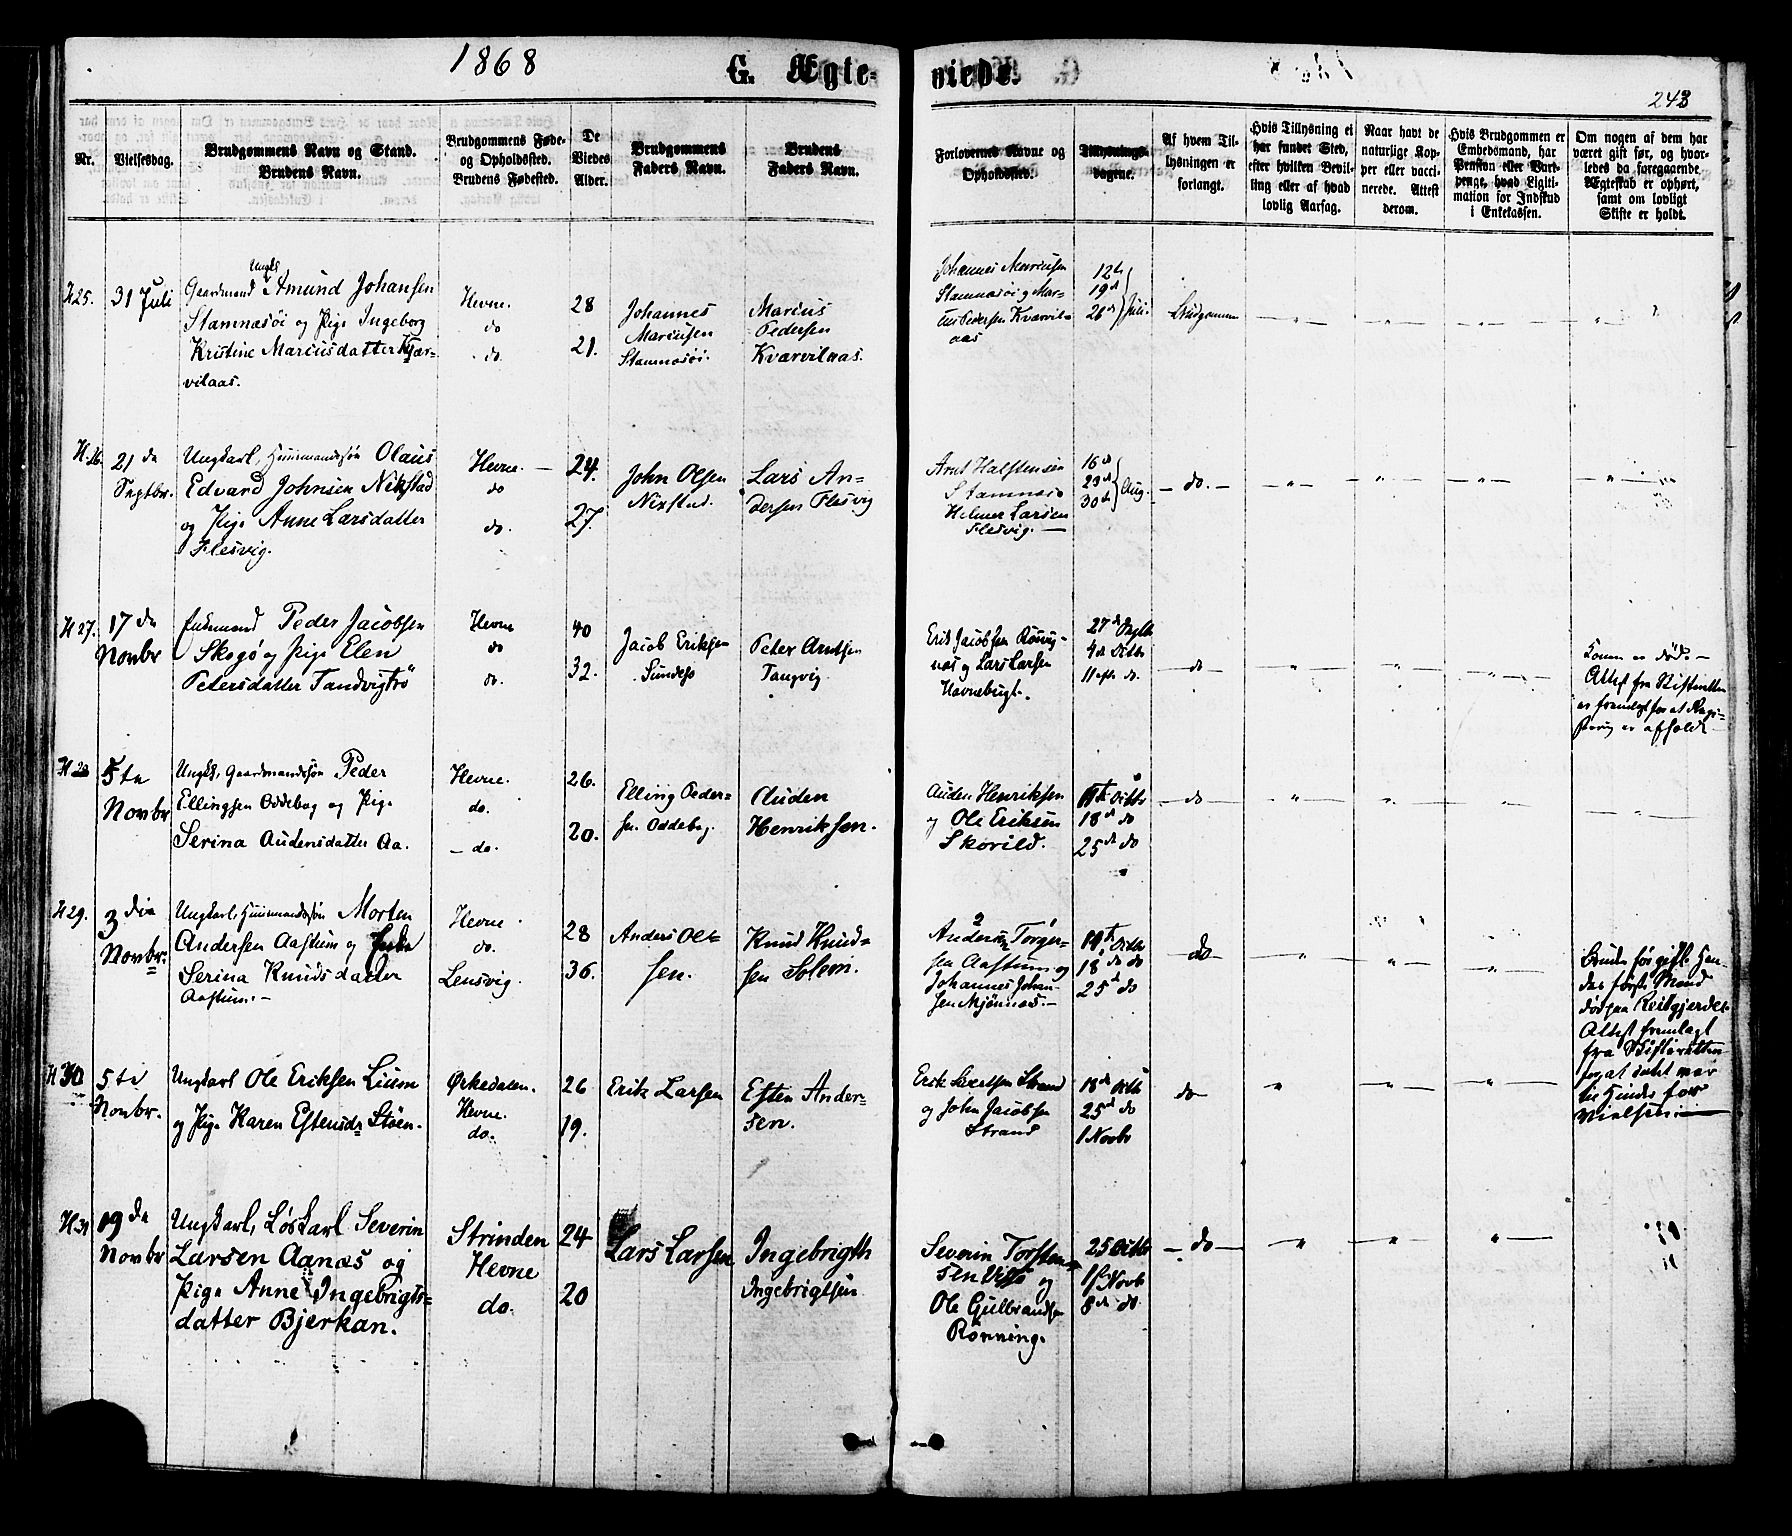 1868
G. Ægte-
viede.
243
Nr.
Vielsesdag.
Brudgommens Navn og Stand.
Brudens Navn.
Brudgommens Føde-
og Opholdssted.
Brudens Fødested.
De
Viedes
Alder.
Brudgommens
Faders Navn.
Brudens
Faders Navn.
Forlovernes Navne og
Opholdssted.
Tillysnings-
dagene.
Af hvem Til-
lysningen er
forlangt.
Hvis Tillysning ei
har fundet Sted,
efter hvilken Bevil-
ling eller af hvad
lovlig Aarsag.
Naar havt de
naturlige Kop-
per eller vacci-
nerede. Attest
derom.
Hvis Brudgommen er
Embedsmand, har
Pension eller Vart-
penge, hvad Ligiti-
mation for Indskud
i Enkekassen.
Om nogen af dem har
været gift før, og hvor-
ledes da foregaaende
Ægteskab er ophørt,
samt om lovligt
Skifte er holdt.
H25.
31 Juli
Ungk.
Gaardmand Amund Johansen
Stamnæsøi og Pige Ingeborg
Kristine Marciusdatter Kvar-
vilaas.
Hevne.
do
do.
28
21.
Johannes
Marciusen
Stamnæsøi.
Marcius
Pedersen
Kvarvilaas.
Johannes Marciusen
Stamnæsøi og Mar-
cius Pedersen Kvarvil-
aas
12te
19de
26de
Juli.
Brudgommen
H.26.
21 de
Septbr.
Ungkarl, Huusmandssøn Olaus
Edvard Johnsen Nikstad
og Pige Anne Larsdatter
Flesvig.
Hevne.
do
do.
24.
27.
John Olsen
Nixstad.
Lars An-
dersen Flesvig
Arnt Halstensen
Stamnæs
Helmer Larsen
Flesvig.
16de
23de
30te
Aug.
do.
H27.
17 de
Novbr
Enkemand Peder Jacobsen
Skogø og Pige Elen
Petersdatter Tandvigtrø
Hevne
do
do.
40
32.
Jacob Eriksen
Sundesø
Peter Arntsen
Tangvig
Erik Jacobsen Rosvig-
næs og Lars Larsen
Havnebugt.
27de Septb
4de Octbr
11efte do.
do
Konen er død.
Attest fra Skifteretten
er fremlagt for at Regi-
strering er afholdt
H28
5te
Novbr
Ungk, Gaardmandssøn Peder
Ellingsen Oddebog og Pige
Serina Audensdatter Aa.
Hevne.
do.
do.
26.
20.
Elling Peder-
sen Oddebog.
Auden
Henriksen.
Auden Henriksen
og Ole Eriksen
Skorild.
11te Octbr
18de do
25de do
do
H29.
3 die
Novbr.
Ungkarl, Huusmandssøn Morten
Andersen Aastum og Enke
Serina Knudsdatter
Aastum.
Hevne.
do.
Lensvig.
28
36.
Anders Ol-
sen.
Knud Knud-
sen Solem.
Anders Torger-
sen Aastum og
Johannes Johan-
sen Mjønnæs.
11te Octbr
18de do
25de do
do
Bruden før gift. Hen-
des første Mand
død paa Reitgjerdet.
Attest fremlagt
fra Skifteretten
for at intet var
til Hinder for
Vielsen.
H30
5te
Novbr.
Ungkarl Ole Eriksen Lium
og Pige Karen Estensdr Støen.
Ørkedalen.
Hevne.
do.
26
19.
Erik Larsen
Esten Ander-
sen.
og John Jacobsen
Strand
18de Octbr
25de do
1 Novbr
do
H31
19 de
Novbr
Ungkarl, Løskarl Severin
Larsen Aanæs og
Pige Anne Ingebrigts-
datter Bjerkan.
Strinden
Hevne
do.
24
20
Lars Larsen
Ingebrigth
Ingebrigtsen
Severin Torsten-
sen og
Ole Gulbrandsen
Rønning.
25 Octbr
1ste Novb
8de do.
do